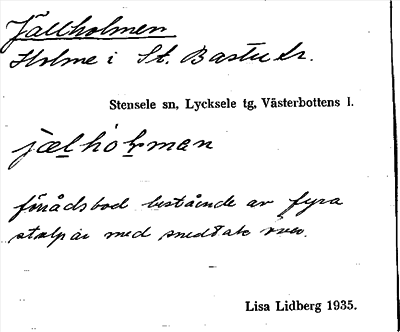 Jällholmen
Holme i St. Bastutr.
Stensele sn, Lycksele tg, Västerbottens l.
jæl holman
förrådsbod bestående av fyra
stolpar med snedtak över.
Lisa Lidberg 1935.